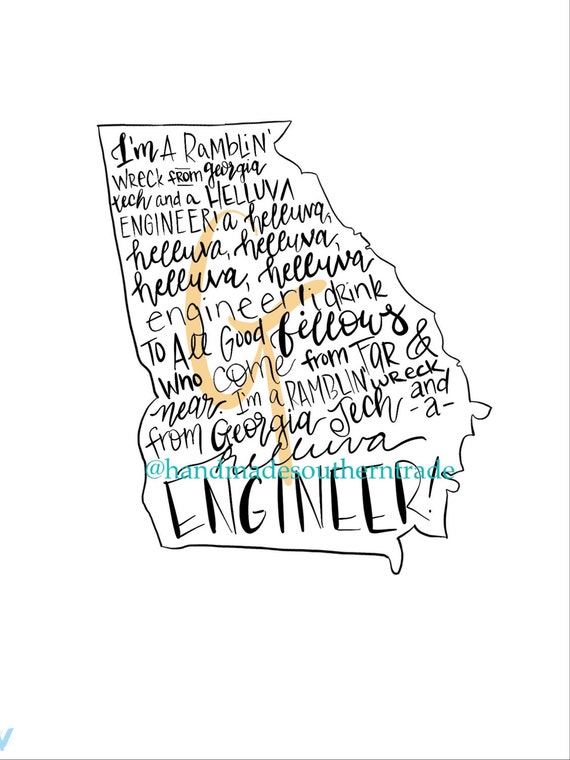 I'm A RamBLiN'
WRecK FROM georgia
tech and a HELLUVA
ENGINEER! a helluva,
helluva, helluva,
helluva, helluva
engineer! i drink
To All Good fellows
Who come from FaR &
near. I'm a RAMBLIN' wreck
from Georgia Tech -and
-a-
helluva
@handmadesoutherntrade
ENGINEER!
GT